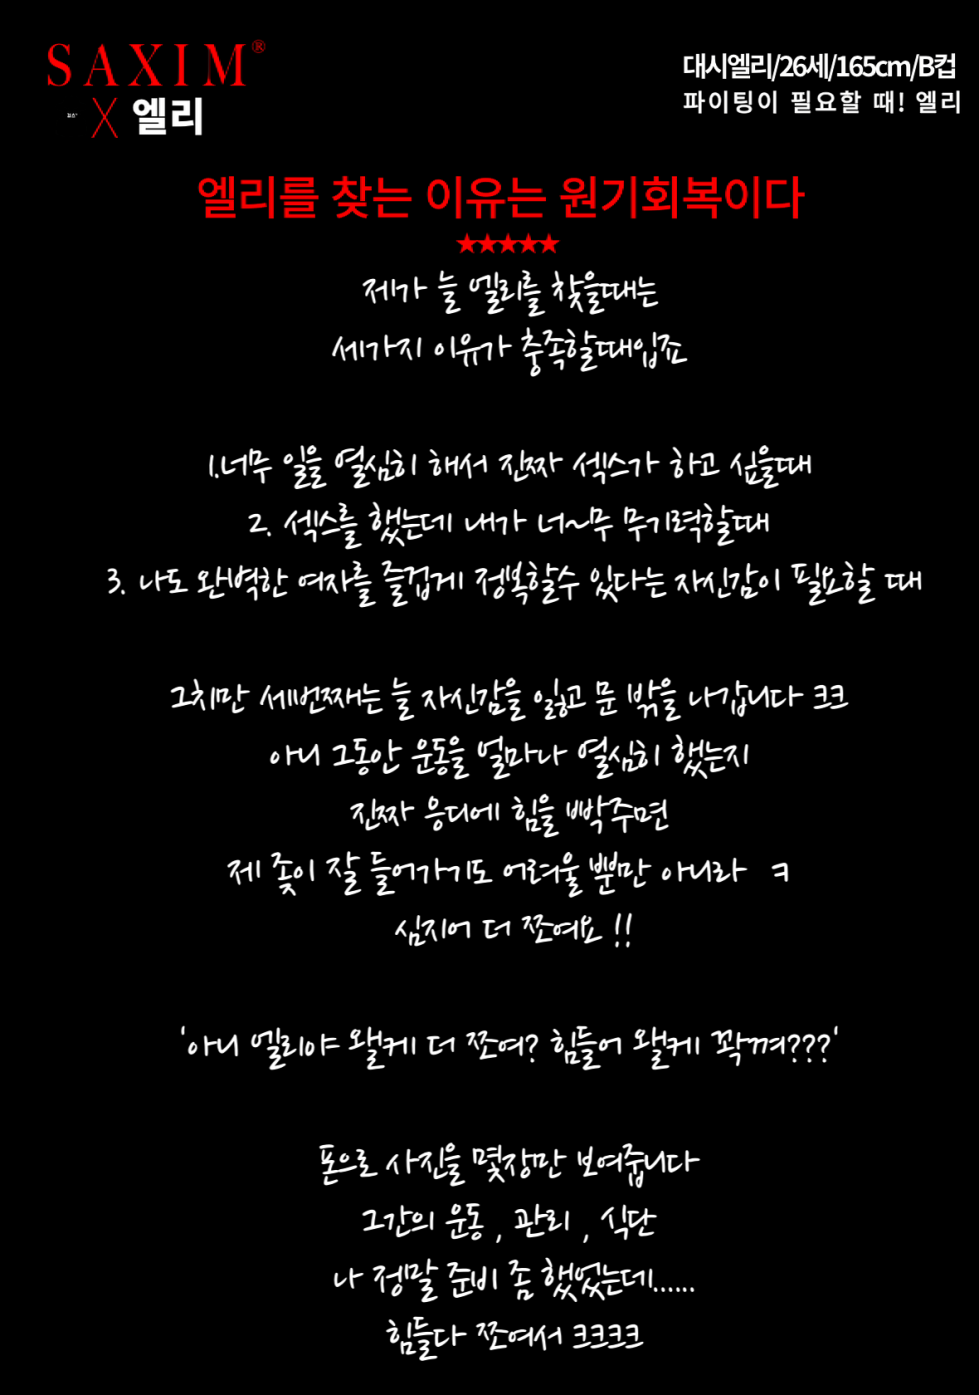 SAXIM®
X 엘리
대시엘리/26세/165cm/B컵
파이팅이 필요할 때! 엘리
엘리를 찾는 이유는 원기회복이다
★★★★★
제가 늘 엘리를 찾을때는
세가지 이유가 충족할때입죠
1.너무 일을 열심히 해서 진짜 섹스가 하고 싶을때
2. 섹스를 했는데 내가 너~무 무기력할때
3. 나도 완벽한 여자를 즐겁게 정복할수 있다는 자신감이 필요할 때
그치만 세번째는 늘 자신감을 잃고 문 밖을 나갑니다 ㅋㅋ
아니 그동안 운동을 얼마나 열심히 했는지
진짜 응디에 힘을 빡주면
제 좆이 잘 들어가기도 어려울 뿐만 아니라 ㅋ
심지어 더 쪼여요 !!
'아니 엘리야 왤케 더 쪼여? 힘들어 왤케 꽉껴???'
폰으로 사진을 몇장만 보여줍니다
그간의 운동 , 관리 , 식단
나 정말 준비 좀 했었는데......
힘들다 쪼여서 ㅋㅋㅋㅋ